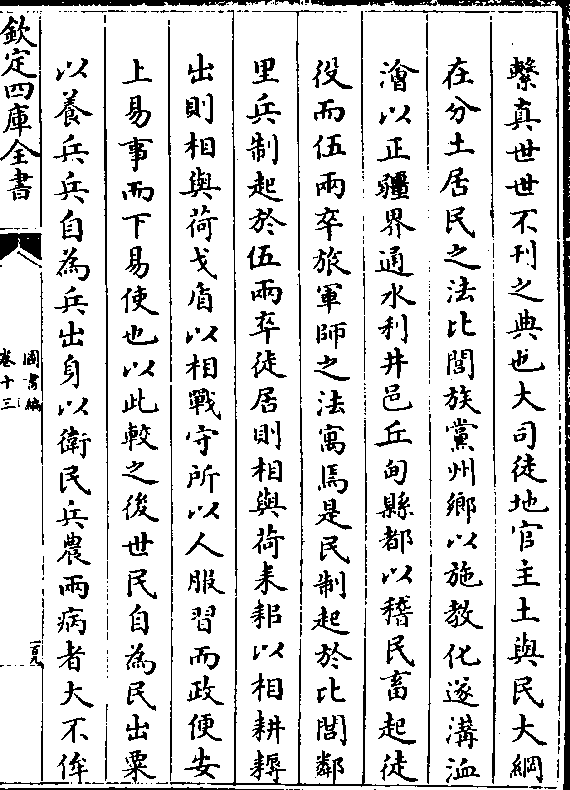 繫真世世不刊之典也大司徒地官主土與民大綱
在分土居民之法比閭族黨州鄉以施教化遂溝洫
澮以正疆界通水利井邑丘甸縣都以稽民畜起徒
役而伍兩卒旅軍師之法寓焉是民制起於比閭鄰
里兵制起於伍兩卒徒居則相與荷耒耜以相耕耨
出則相與荷戈盾以相戰守所以人服習而政便安
上易事而下易使也以此較之後世民自為民出粟
以養兵兵自為兵出身以衛民兵農兩病者大不侔
欽定四庫全書
圖書編
卷十三